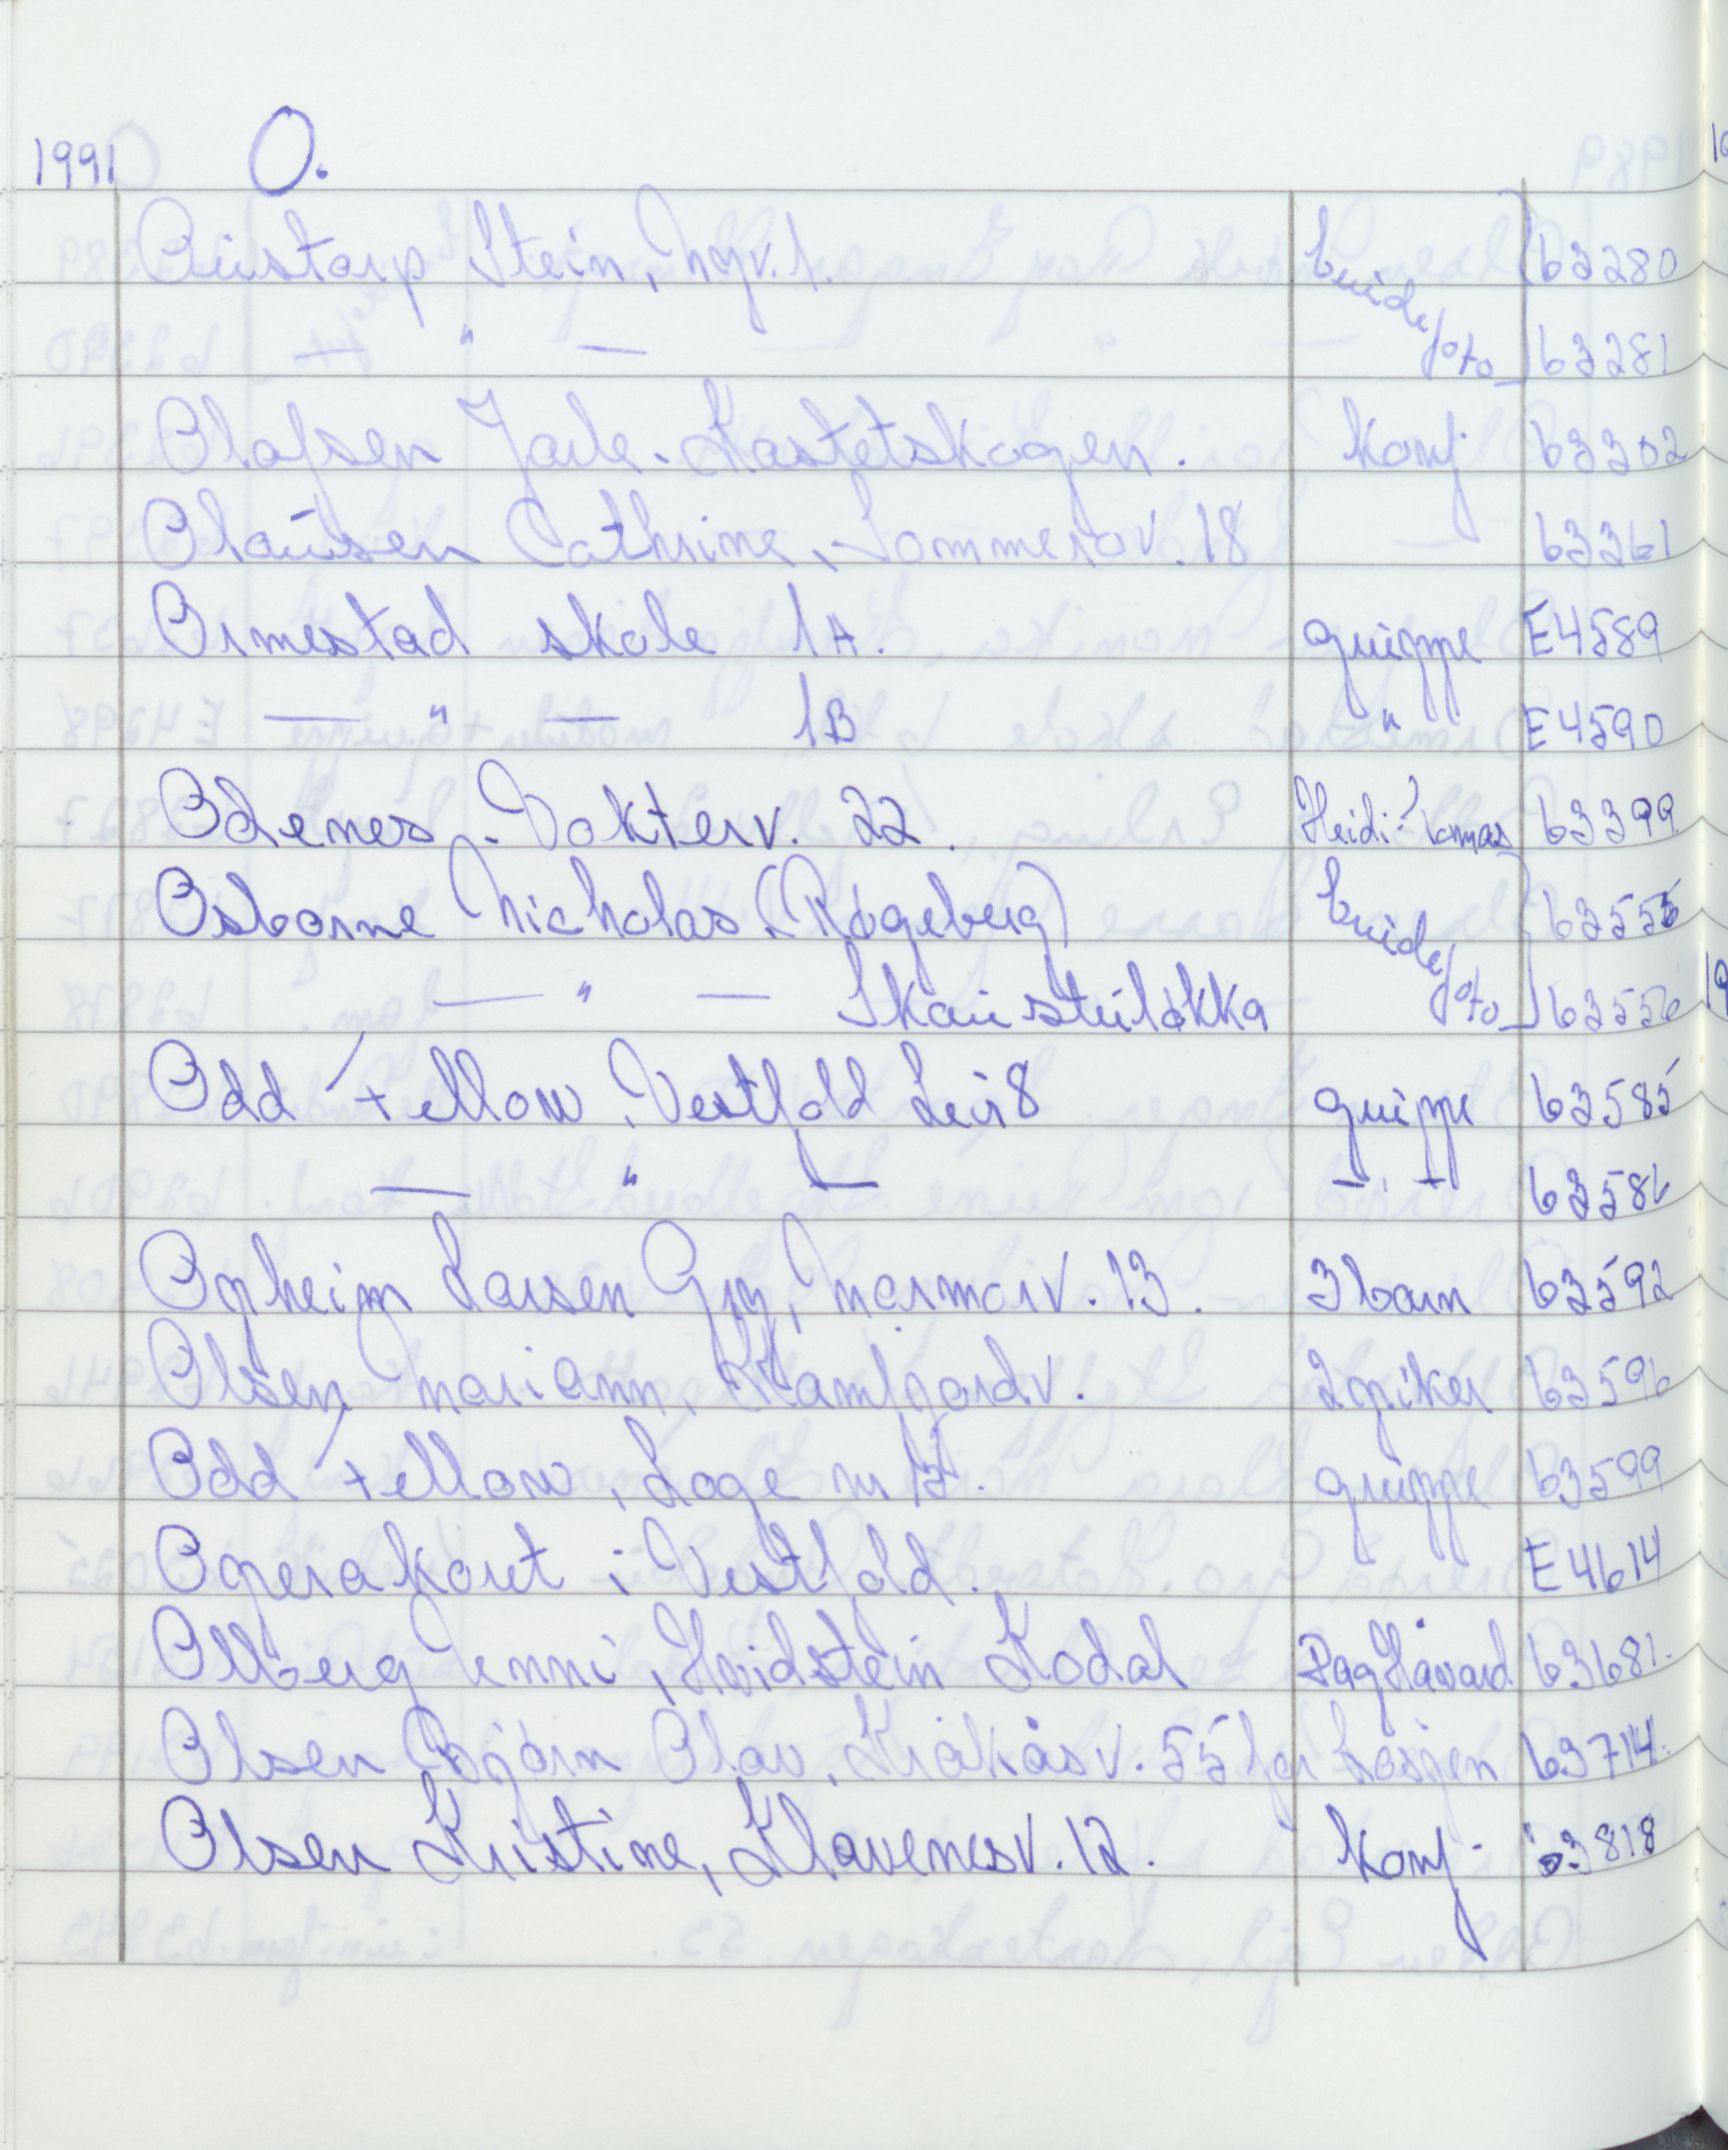 1991 O.
Oustorp Stein, Nyv. 1. brudefoto 63280
— " — 63281
Olafsen Jarle. Kastetskogen. Konf 63302
Olaüsen Cathrine, Sommerov. 18 — 63361
Ormestad skole 1A. grüppe E4589
— " — 1B " E4590
Odenes, Vokterv. 22. Heidi-Tomas 63399
Osborne Nicholas. (Røgeberg) brudefoto 63555
— " — Skaustuløkka 63556
Odd Fellow, Vestfold Leir 8 grüppe 63585
— " — — " — 63586
Opheim Larsen Gry, Marmorv. 13. 3 barn 63592
Olsen Mariann, Kamfjordv. 2 piker 63596
Odd Fellow, Loge nr 17. grüppe 63599
Operakoret i Vestfold. E4614
Ollberg Unni, Hvidstein Kodal Dag Håvard 63681.
Olsen Bjørn Olav, Kråkåsv. 55 for Lasjen 63714.
Olsen Kristine, Klavenesv. 12. Konf. 63818